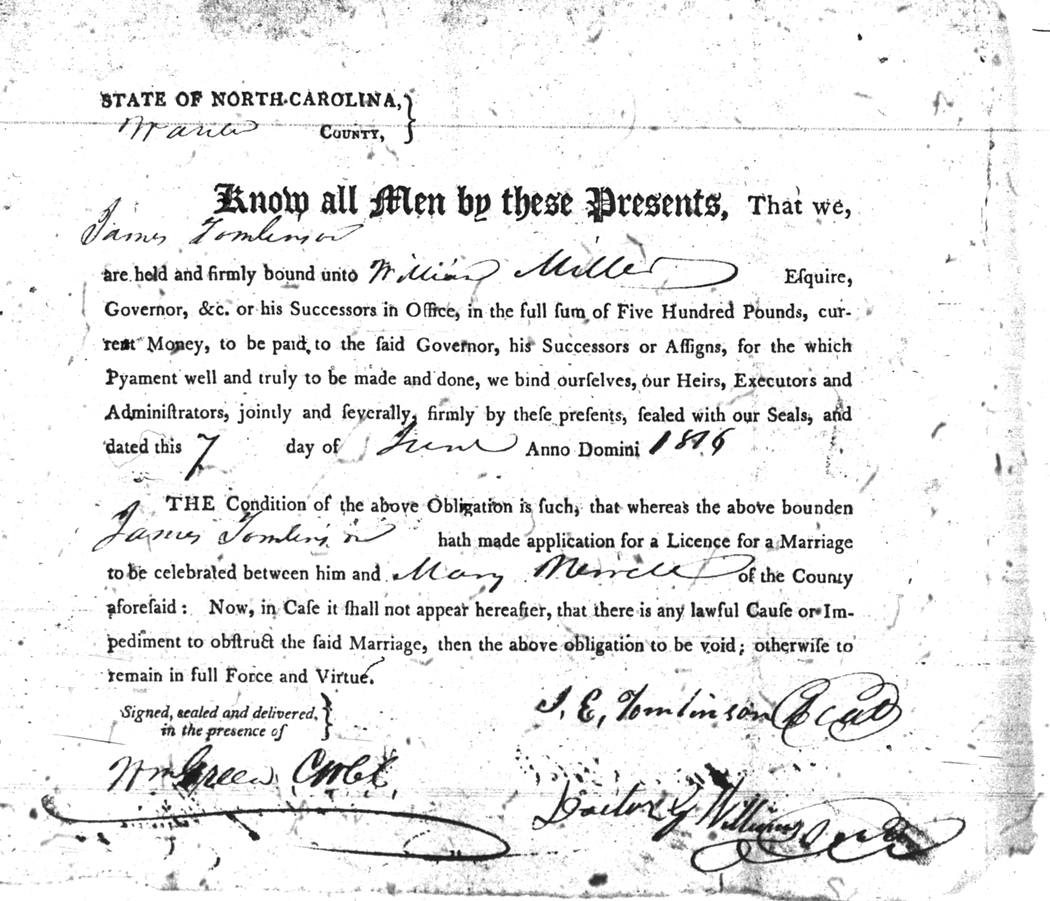 STATE OF NORTH-CAROLINA,
Warren COUNTY,
Know all Men by these Presents, That we,
James Tomlinson
are held and firmly bound unto William Miller Eſquire,
Governor, &c. or his Successors in Office, in the full ſum of Five Hundred Pounds, cur-
rent Money, to be paid, to the ſaid Governor, his Successors or Aſſigns, for the which
Pyament well and truly to be made and done, we bind ourſelves, our Heirs, Executors and
Adminiſtrators, jointly and ſeverally, firmly by theſe preſents, ſealed with our Seals, and
dated this 7 day of June Anno Domini 1816
THE Condition of the above Obligation is ſuch, that whereas the above bounden
James Tomlinson hath made application for a Licence for a Marriage
to be celebrated between him and Mary of the County
aforeſaid: Now, in Caſe it ſhall not appear hereafter, that there is any lawful Cauſe or Im-
pediment to obſtruct the ſaid Marriage, then the above obligation to be void; otherwiſe to
remain in full Force and Virtue.
J. E. Tomlinson Seal
Signed, sealed and delivered,
in the presence of
Wm Green
Doctor G Williams Seal